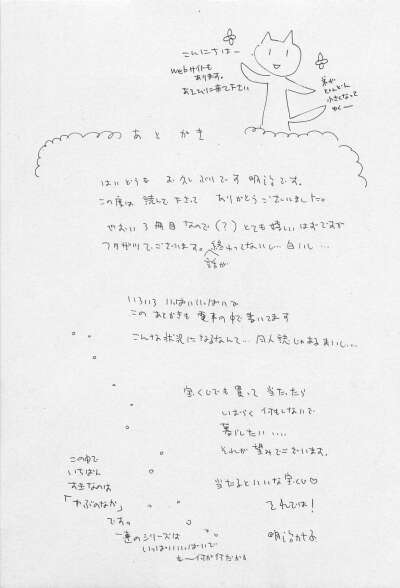 こんにちはー
webサイトも
あります。
あそびに来て下さい
字が
どんどん
小さくなって
ゆくー
あとがき
はいどうも お久しぶりです 明治です。
この度は 読んで下さって ありがとうございました。
やおい3冊目なので(?)とても嬉しいはずですが
フタガリでございます。終わってないし…白いし…
話が
いろいろ いっぱいいっぱいで
このあとがきも 電車の中で書いてます
こんな状況になるなんて…同人誌じゃあるまいし…
宝くじでも買って 当たったら
しばらく何もしないで
暮らしたい….
それが望みでございます。
当たるといいな宝くじ♡
それでは!
明治カナ子
この中で
いちばん
すきなのは
「やぶのなか」
です。
一連のシリーズは
いっぱいいっぱいで
もー何が何だか